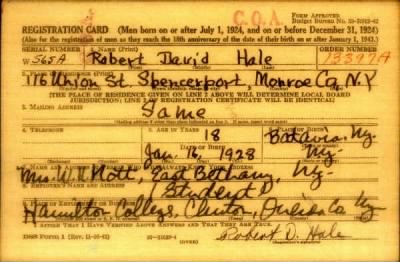 C.O.A. FORM APPROVED
REGISTRATION CARD (Men born on or after July 1, 1924, and on or before December 31, 1924)
(Also for the registration of men as they reach the 18th anniversary of the date of their birth on or after January 1, 1943.)
SERIAL NUMBER 1. NAME (Print) ORDER NUMBER
W 565A Robert David Hale 13397A
2. PLACE OF RESIDENCE (Print)
116 Union St. Spencerport, Monroe Co. N.Y
[THE PLACE OF RESIDENCE GIVEN ON LINE 2 ABOVE WILL DETERMINE LOCAL BOARD
JURISDICTION; LINE 2 OF REGISTRATION CERTIFICATE WILL BE IDENTICAL]
3. MAILING ADDRESS
Same
4. TELEPHONE 5. AGE IN YEARS 6. PLACE OF BIRTH
18 Batavia Ny.
DATE OF BIRTH
Jan. 16, 1928 Ny.
Mrs. W. H. Mott, East Bethany, Ny.
8. EMPLOYER'S NAME AND ADDRESS
(Student)
Hamilton College, Clinton, Oneida Co Ny
I AFFIRM THAT I HAVE VERIFIED ABOVE ANSWERS AND THAT THEY ARE TRUE.
DSS Form 1 Robert D. Hale